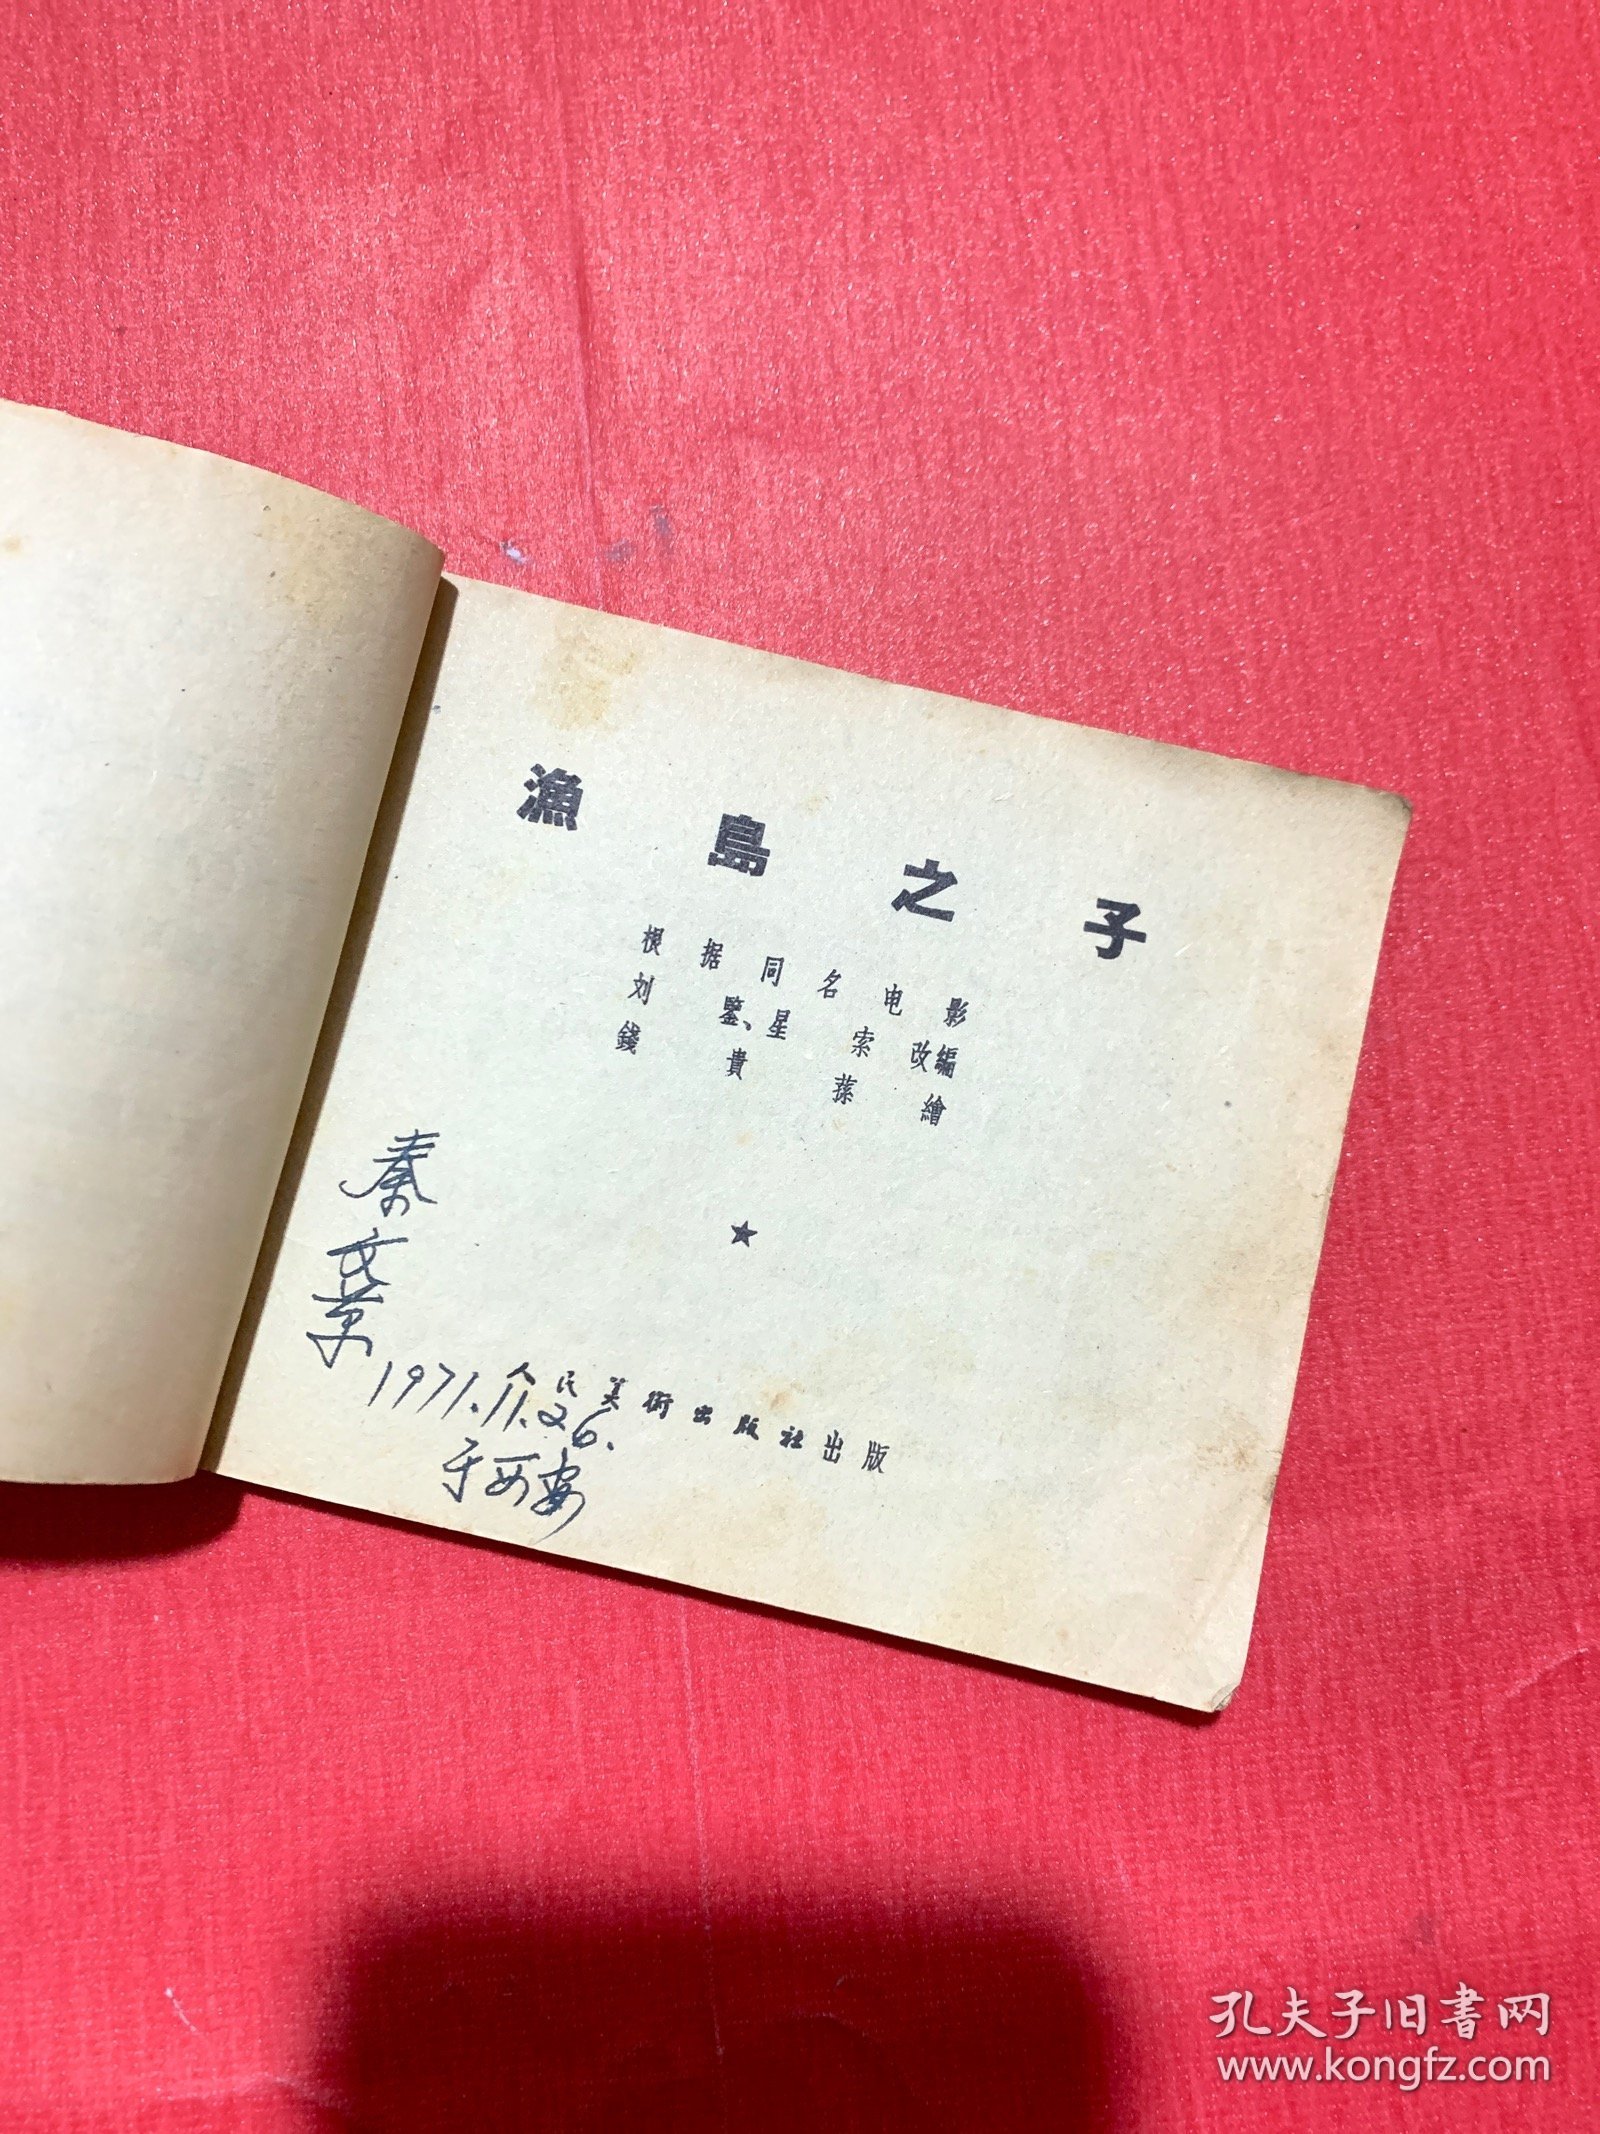 漁島之子
根据同名电影
刘鑒、星索改編
錢貴蓀繪
★
人民美術出版社出版
秦文
1971.11.26.
于西安
孔夫子旧書网
www.kongfz.com